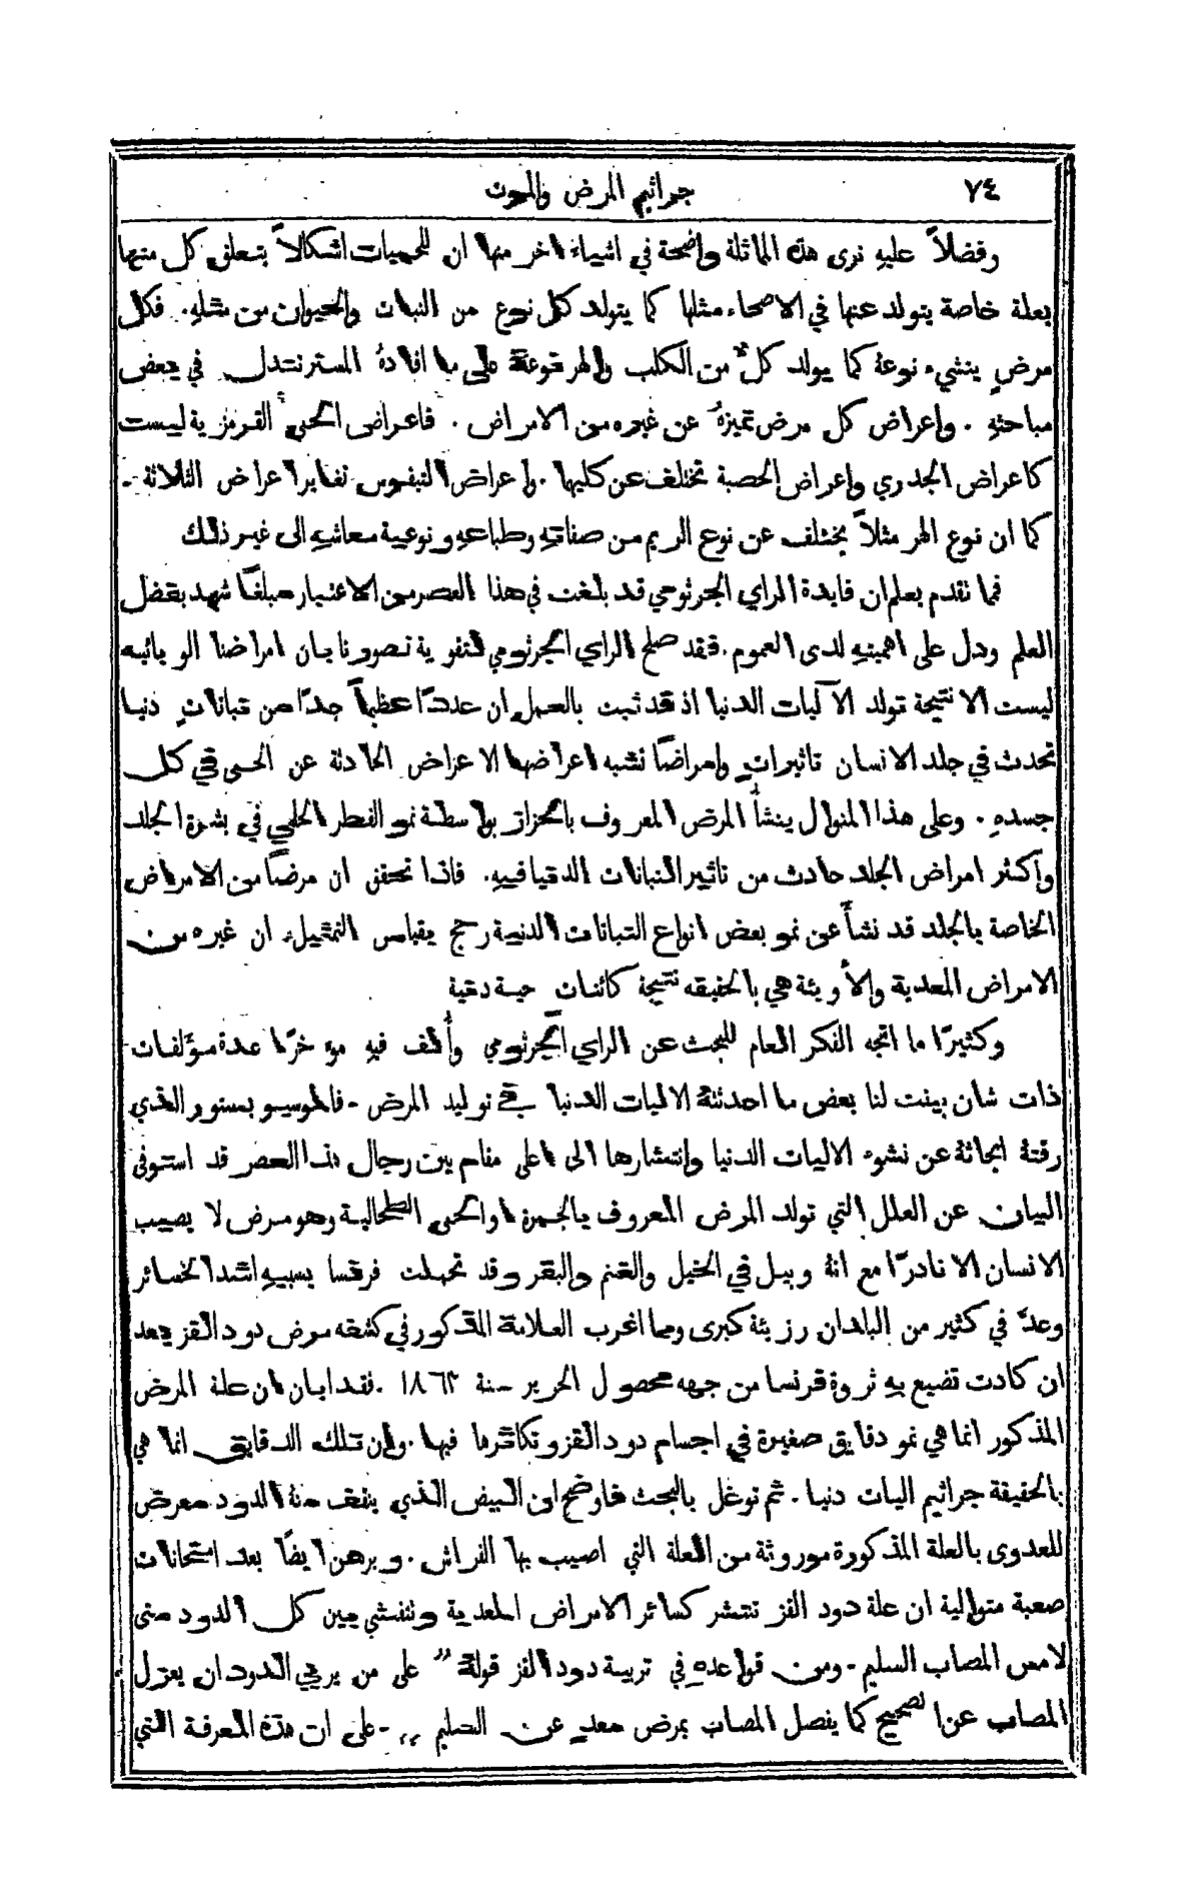 ٧٤ جراثيم المرض والموت
وفضلاً عليهِ نرى هذه المماثلة واضحة في اشياءَ اخر منها ان للحميات اشكالاً يتعلق كل منها
بعلة خاصة يتولد عنها في الاصحاء مثلها كما يتولد كل نوع من النبات والحيوان من مثلهِ. فكل
مرضٍ ينشيء نوعهُ كما يولد كلٌّ من الكلب والهر نوعهُ على ما افادهُ المستر تندل في بعض
مباحثهِ. واعراض كل مرض تميزهُ عن غيره من الامراض. فاعراض الحمى القرمزية ليست
كاعراض الجدري واعراض الحصبة تختلف عن كليهما. واعراض التيفوس تغاير اعراض الثلاثة.
كما ان نوع الهر مثلاً يختلف عن نوع الريم من صفاتهِ وطباعهِ ونوعية معاشهِ الى غير ذلك
فما تقدم يعلم ان فايدة الراي الجرثومي قد بلغت في هذا العصر من الاعتبار مبلغًا شهد بفضل
العلم ودل على اهميتهِ لدى العموم. فقد صلح الراي الجرثومي لتقوية تصورنا بان امراضنا الوبائيه
ليست الا نتيجة تولد الآليات الدنيا اذ قد ثبت بالعمل ان عددًا عظيماً جدًا من نباتاتٍ دنيا
تحدث في جلد الانسان تاثيراتٍ وامراضًا تشبه اعراضها الاعراض الحادثة عن الحمى في كل
جسدهِ. وعلى هذا المنوال ينشأ المرض المعروف بالحزاز بواسطة نمو الفطر الحلمي في بشرة الجلد
واكثر امراض الجلد حادث من تاثير النباتات الدقيا فيهِ. فاذا تحقق ان مرضًا من الامراض
الخاصة بالجلد قد نشأ عن نمو بعض انواع النباتات الدنية رجح بقياس التمثيل ان غيره من
الامراض المعدية والأوبئة هي بالحقيقه نتيجة كائنات حية دقية
وكثيرًا ما اتجه الفكر العام للبحث عن الراي الجرثومي وأُلف فيهِ موخرًا عدة مؤلفات
ذات شان بينت لنا بعض ما احدثتهُ الاليات الدنيا في توليد المرض. فالموسيو بستور الذي
رقتهُ ابحاثهُ عن نشوء الاليات الدنيا وانتشارها الى اعلى مقام بين رجال هذا العصر قد استوفى
البيان عن العلل التي تولد المرض المعروف بالجمرة او الحمى الطحالية وهو مرض لا يصيب
الانسان الا نادرًا مع انهُ وبيل في الخيل والغنم والبقر وقد تحملت فرنسا بسببهِ اشد الخسائر
وعدَّ في كثير من البلدان رزيئة كبرى ومما اغرب العلامة المذكور في كشفه مرض دود القز بعد
ان كادت تضيع بهِ ثروة فرنسا من جهه محصول الحرير سنة ١٨٦٣. فقد ابان ان علة المرض
المذكور انما هي نمو دقايق صغيرة في اجسام دود القز وتكاثرها فيها. وان تلك الدقايق انما هي
بالحقيقة جراثيم اليات دنيا. ثم توغل بالبحث فاوضح ان البيض الذي ينقف منهُ الدود معرض
للعدوى بالعلة المذكورة موروثة من العلة التي اصيب بها الفراش. وبرهن ايضًا بعد امتحانات
صعبة متوالية ان علة دود القز تنتشر كسائر الامراض المعدية وتتفشى بين كل الدود متى
لامس المصاب السليم. ومن قواعدهِ في تربية دود القز قولهُ " على من يربي الدود ان يعزل
المصاب عن الصحيح كما يفصل المصاب بمرض معدٍ عن السليم ,, . على ان هذه المعرفة التي